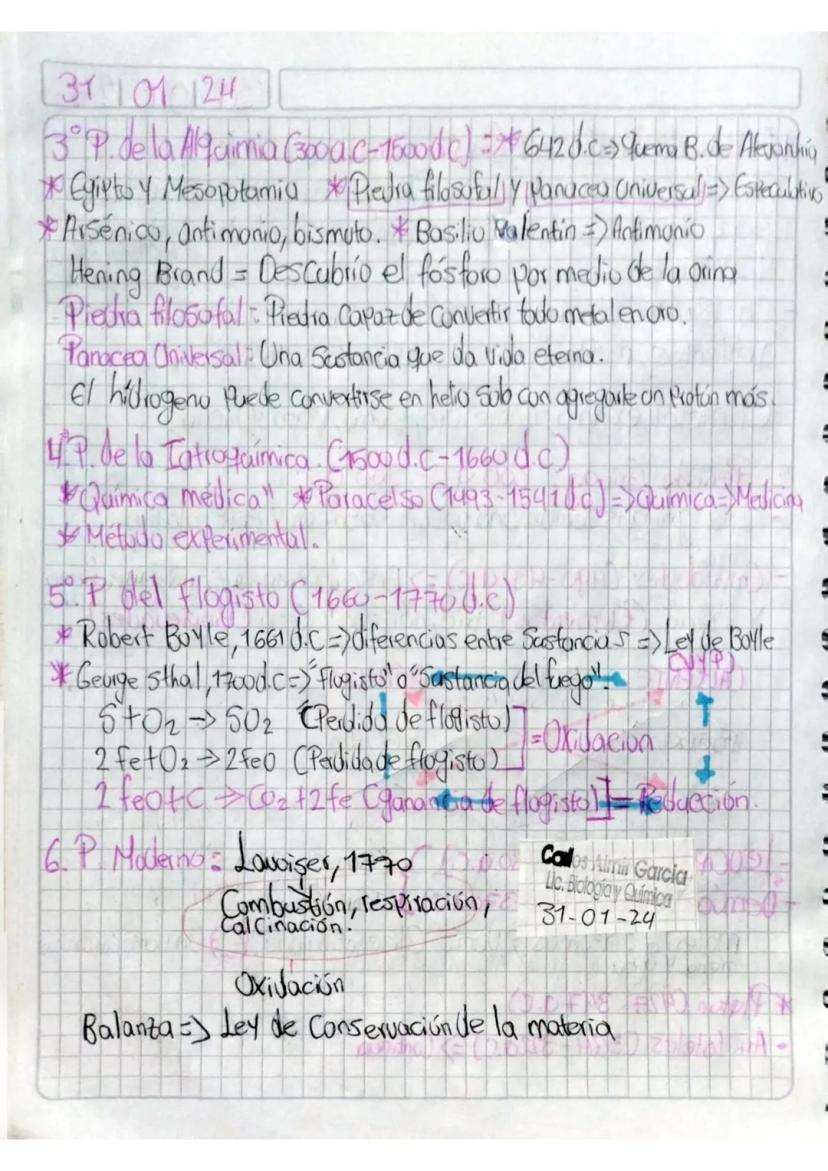 31 01 24
3° P. de la Alquimia (300 a.c-1500 d.c) = * 642 d.c => Quema B. de Alejandría
* Egipto y Mesopotamia * Piedra filosofal y Panacea Universal => Especulativo
* Arsénico, antimonio, bismuto. * Basilio Valentin => Antimonio
Hening Brand = Descubrió el fósforo por medio de la orina
Piedra filosofal = Piedra capaz de convertir todo metal en oro.
Panacea Universal = Una Sustancia que da vida eterna.
El hidrogeno puede convertirse en helio solo con agregarle un Protón más.
4° P. de la Iatroquímica. (1500 d.c - 1660 d.c)
* "Química médica" * Paracelso (1493-1541 d.c) => Química => Medicina
* Método experimental.
5° P del flogisto (1660-1770 d.c)
* Robert Boyle, 1661 d.c => diferencias entre Sustancias => Ley de Boyle
(V y P)
* George Sthal, 1700 d.c => "flogisto" o "Sustancia del fuego".
S + O2 -> SO2 (Perdida de flogisto)
2 fe + O2 -> 2 feO (Perdida de flogisto) ] = Oxidación
2 feO + C -> CO2 + 2 fe (ganancia de flogisto) ] = Reducción.
6. P. Moderno: Lavoiser, 1770
Combustión, respiración,
calcinación.
Carlos Almir Garcia
Lic. Biología y Química
31-01-24
Oxidación
Balanza => Ley de Conservación de la materia